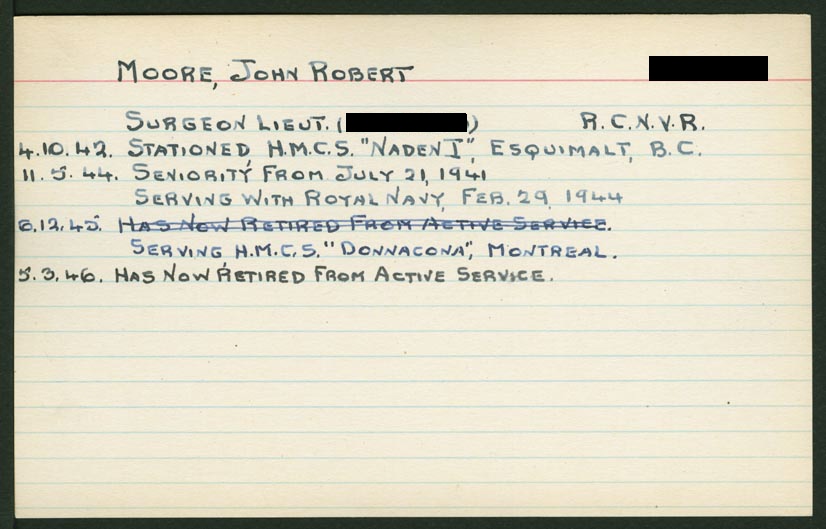 MOORE, JOHN ROBERT
SURGEON LIEUT. ( ) R.C.N.V.R.
4.10.42. STATIONED, H.M.C.S. "NADEN I", ESQUIMALT, B.C.
11.5.44. SENIORITY FROM JULY 21, 1941
SERVING WITH ROYAL NAVY, FEB. 29, 1944
6.12.45. HAS NOW RETIRED FROM ACTIVE SERVICE.
SERVING H.M.C.S. "DONNACONA", MONTREAL.
5.3.46. HAS NOW RETIRED FROM ACTIVE SERVICE.